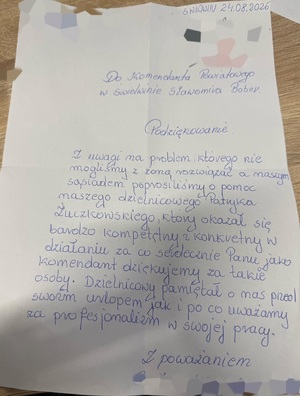 ŚWIDWIN 24.08.2026
Do Komendanta Powiatowego
w Świdwinie Sławomira Bober.
Podziękowanie
Z uwagi na problem, którego nie
mogliśmy z żoną rozwiązać a naszym
sąsiadem poprosiliśmy o pomoc
naszego dzielnicowego Patryka
Żuczkowskiego, który okazał się
bardzo kompetentny i konkretny w
działaniu za co serdecznie Panu jako
komendant dziękujemy za takie
osoby. Dzielnicowy pamiętał o nas przed
swoim urlopem jak i po co uważamy
za profesjonalizm w swojej pracy.
Z poważaniem